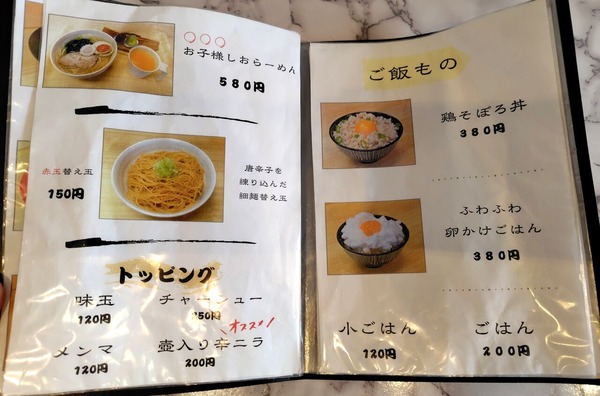 ○○○
お子様しおらーめん
580円
赤玉替え玉
150円
唐辛子を
練り込んだ
細麺替え玉
トッピング
味玉
120円
チャーシュー
350円
オススメ!
メンマ
120円
壺入り辛ニラ
200円
ご飯もの
鶏そぼろ丼
380円
ふわふわ
卵かけごはん
380円
小ごはん
120円
ごはん
200円